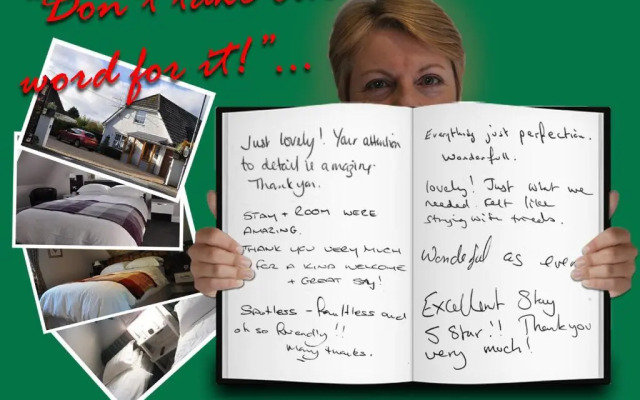 "Don't take
word for it!"...
Just lovely! Your attention
to detail is amazing.
Thank you.
STAY + ROOM WERE
AMAZING.
THANK YOU VERY MUCH
FOR A KIND WELCOME
+ GREAT STAY!
Spotless - faultless and
oh so friendly!!
Many thanks.
Everything just perfection.
Wonderfull.
lovely! Just what we
needed. Felt like
staying with friends.
Wonderful as ever
Excellent Stay
5 Star!! Thank you
very much!